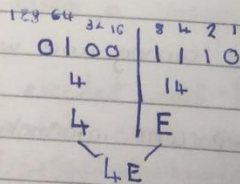 128 64 32 16 8 4 2 1
0100 1110
4 14
4 E
4E